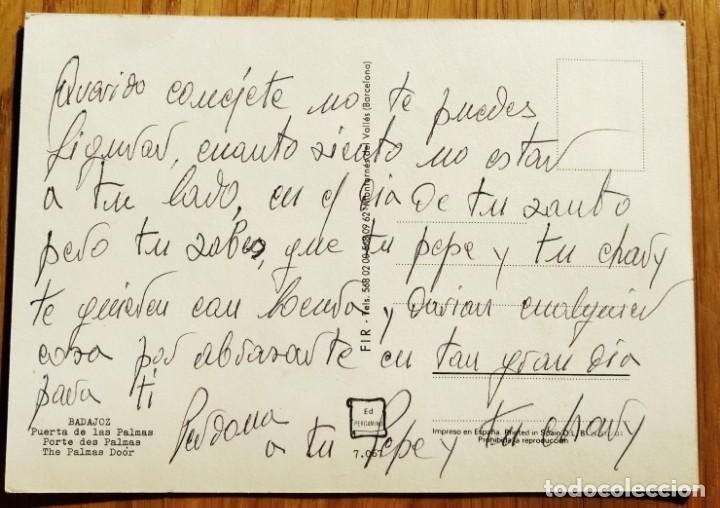 Querido conejete no te puedes
figurar, cuanto siento no estar
a tu lado, en el dia de tu santo
pero tu sabes, que tu pepe y tu chary
te quieren con locura y darian cualquier
cosa por abrazarte en tan gran dia
para ti
Perdona
a tu Pepe y tu chary
BADAJOZ
Puerta de las Palmas
Porte des Palmas
The Palmas Door
FIR - Tels. 568 02 00 - 09 62 - Montornés del Vallés (Barcelona)
Ed
PERGAMINO
7.067
Impreso en España. Printed in Spain D.L. B.
Prohibida la reproducción
todocoleccion
todocoleccion.net